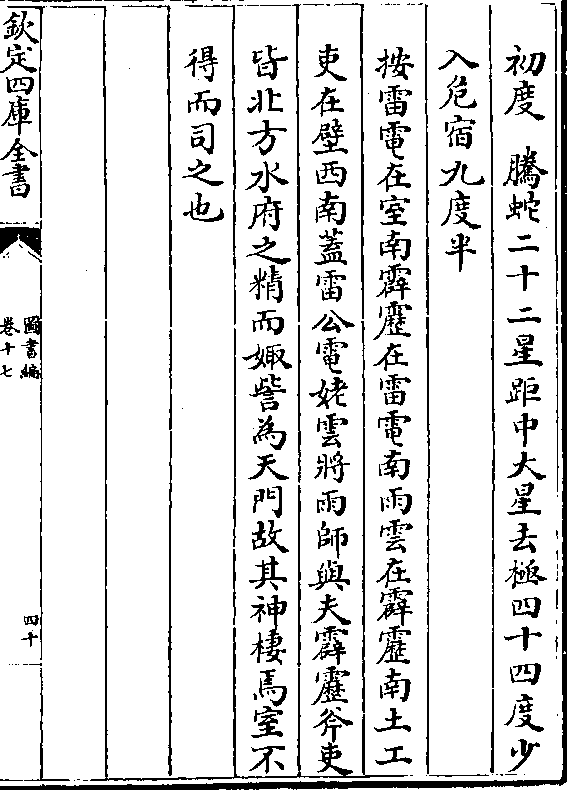 初度　騰蛇二十二星距中大星去極四十四度少
入危宿九度半
按雷電在室南霹靂在雷電南雨雲在霹靂南土工
吏在壁西南蓋雷公電姥雲將雨師與夫霹靂斧吏
皆北方水府之精而娵訾為天門故其神棲焉室不
得而司之也
欽定四庫全書
圖書編
卷十七
四十